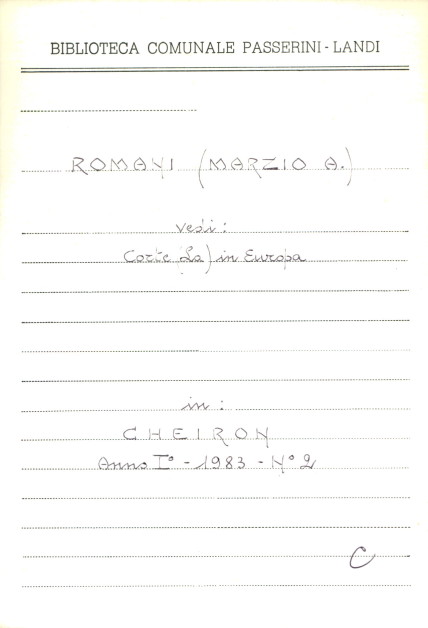 BIBLIOTECA COMUNALE PASSERINI - LANDI
ROMANI (MARZIO A.)
vedi:
Corte (La) in Europa
in:
CHEIRON
Anno I° - 1983 - N° 2
C